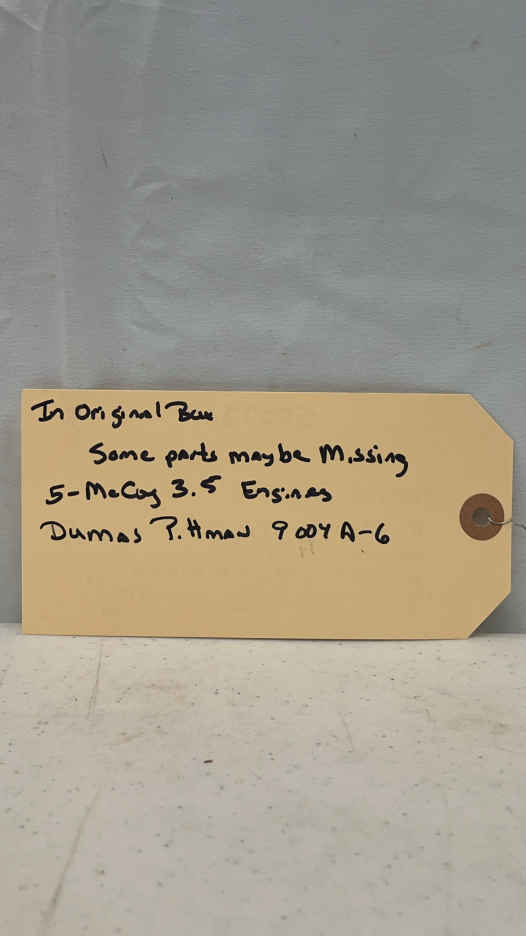 In Original Box
Some parts maybe Missing
5-McCoy 3.5 Engines
Dumas Pittman 9004 A-6